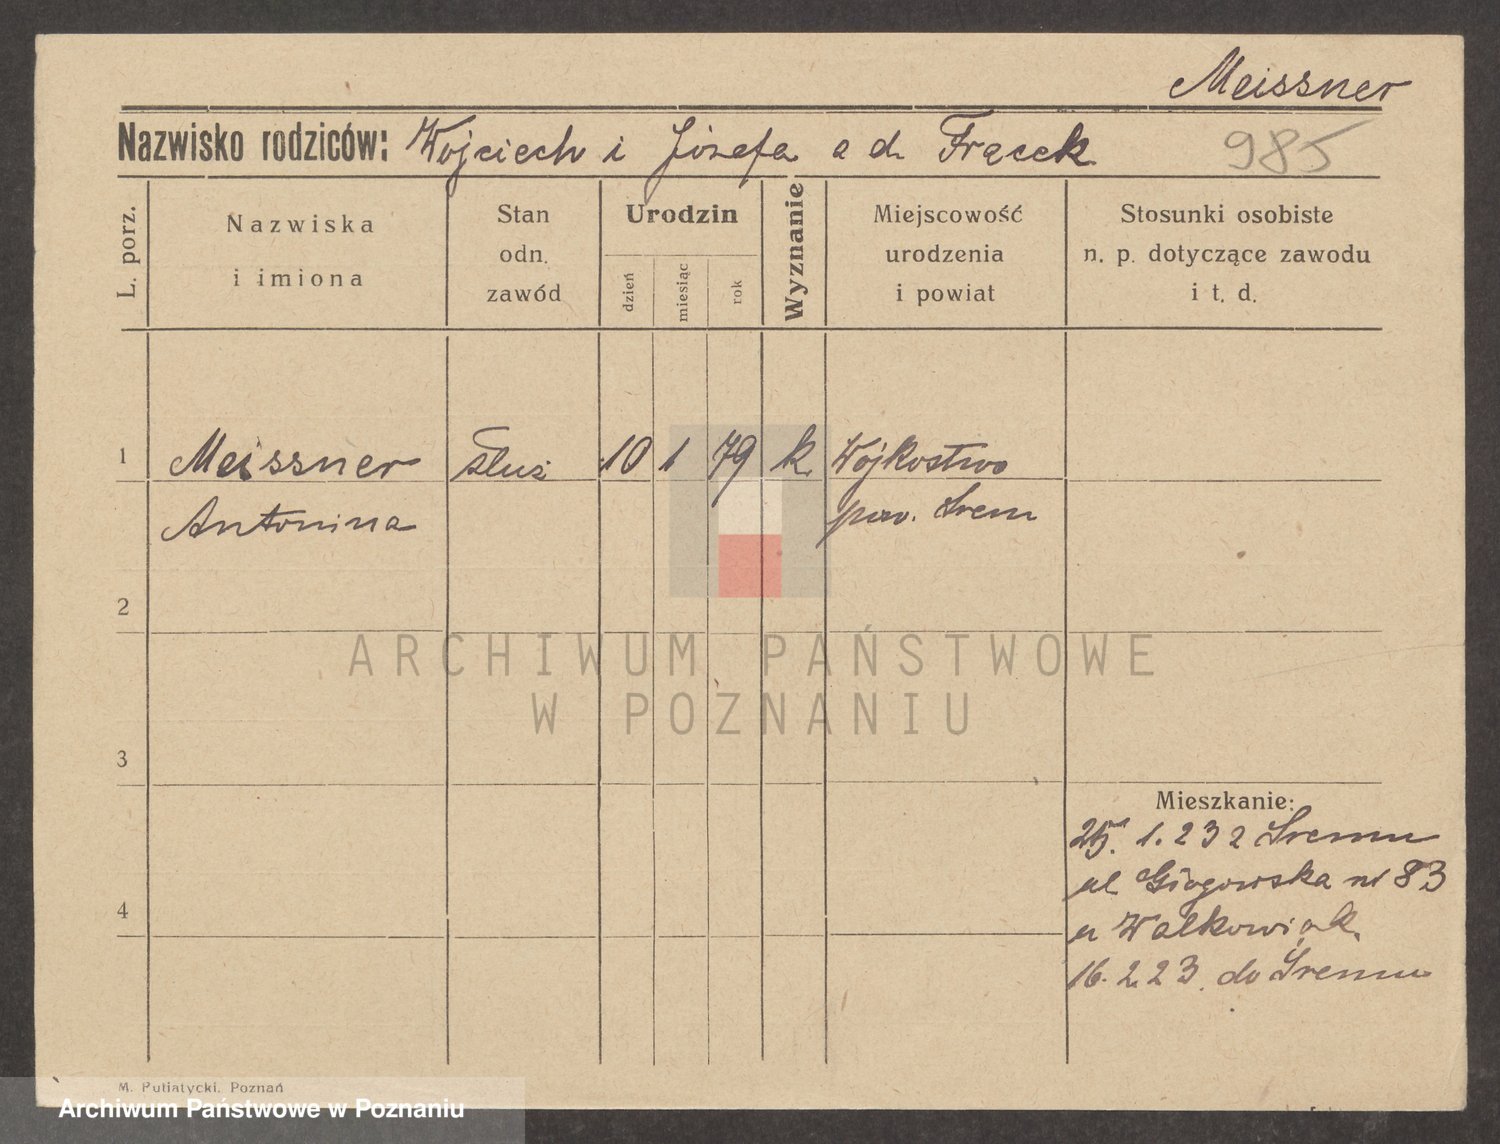 Meissner
Nazwisko rodziców: Wojciech i Józefa a d. Frącek 985
L. porz.
Nazwiska
i imiona
Stan
odn.
zawód
Urodzin
dzień
miesiąc
rok
Wyznanie
Miejscowość
urodzenia
i powiat
Stosunki osobiste
n. p. dotyczące zawodu
i t. d.
1 Meissner służ 10 1 79 k. Wójkostwo
Antonina pow. Śrem
2
3
4
Mieszkanie:
25. 1. 23 z Śremu
ul Głogowska nr 83
u Walkowiak.
16. 2 23. do Śremu
M. Putiatycki, Poznań
ARCHIWUM PAŃSTWOWE
W POZNANIU
Archiwum Państwowe w Poznaniu